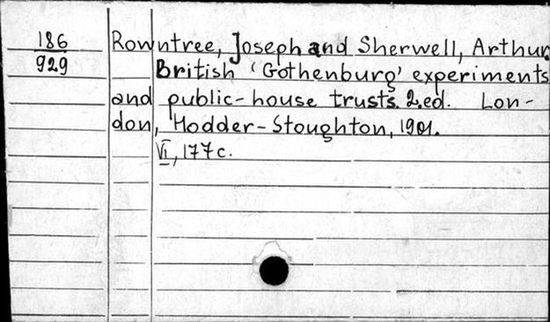 186
929
Rowntree, Joseph and Sherwell, Arthur
British 'Gothenburg' experiments
and public-house trusts. 2.ed. Lon-
don, Hodder-Stoughton, 1901.
VI, 177 c.